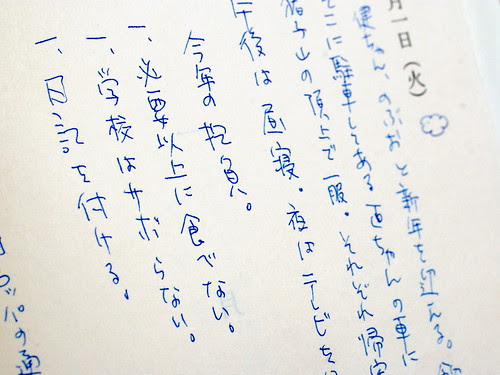 月一日(火)
健ちゃん、のぶおと新年を迎える。
そこに駐車してある直ちゃんの車に
山の頂上で一服。それぞれ帰宅
午後は昼寝。夜はテレビを
今年の抱負。
一、必要以上に食べない。
一、学校はサボらない。
一、日記を付ける。
パの通